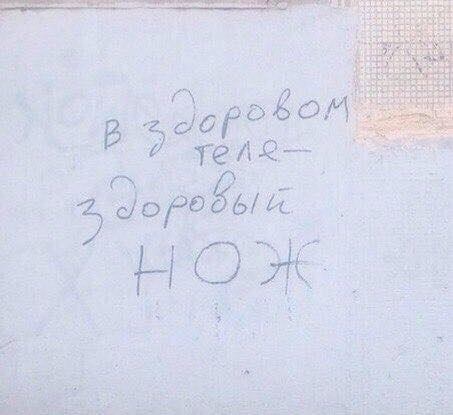 в здоровом
теле –
здоровый
НОЖ